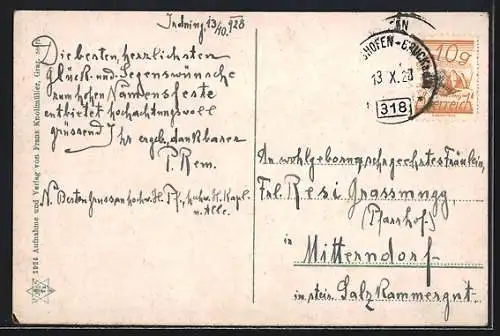 Irdning, 13/10. 928
Die besten, herzlichsten
Glück- und Segenswünsche
zum hohen Namensfeste
entbietet hochachtungsvoll
grüssend
Ihr ergeb. dankbarer
P. Rem.
N. Besten Gruss an hochw. H. Pf., hochw. H. Kapl.
u. Alle.
SHOFEN-BRUCK a.d.
13.X.28
318
10g
An wohlgeborng. hochgeehrtes Fräulein,
Frl. Resi Grassmugg,
(Pfarrhof)
in
Mitterndorf
in steir. Salzkammergut.
1924 Aufnahme und Verlag von Franz Knollmüller, Graz.